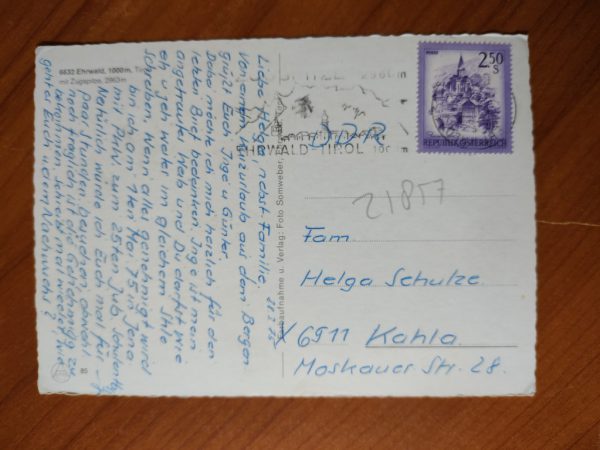 6632 Ehrwald, 1000 m,
mit Zugspitze, 2963 m
Liebe Helga nebst Familie.
Von einem Kurzurlaub aus den Bergen
grüßt Euch Inge u. Günter.
möchte ich mich herzlich für den
Brief bedanken. Inge ist mein
Weib und Du darfst wie
eh u. jeh weiter im gleichem Stile
schreiben. Wenn alles genehmigt wird
bin ich am 7ten Mai 75 in Jena
mit PKW zum 25ten Jub.
Natürlich würde ich Euch mal für
Paar Stunden besuchen obwohl
noch fraglich ist die zu
bekommen. Schreibt mal wieder, wie
geht es Euch u. dem Nachwuchs?
85
u. Verlag: Foto Somweber,
EHRWALD-TIROL
2,50
S
REPUBLIK ÖSTERREICH
DDR
21817
Fam.
Helga Schulze.
6911 Kahla
Moskauer Str. 28.